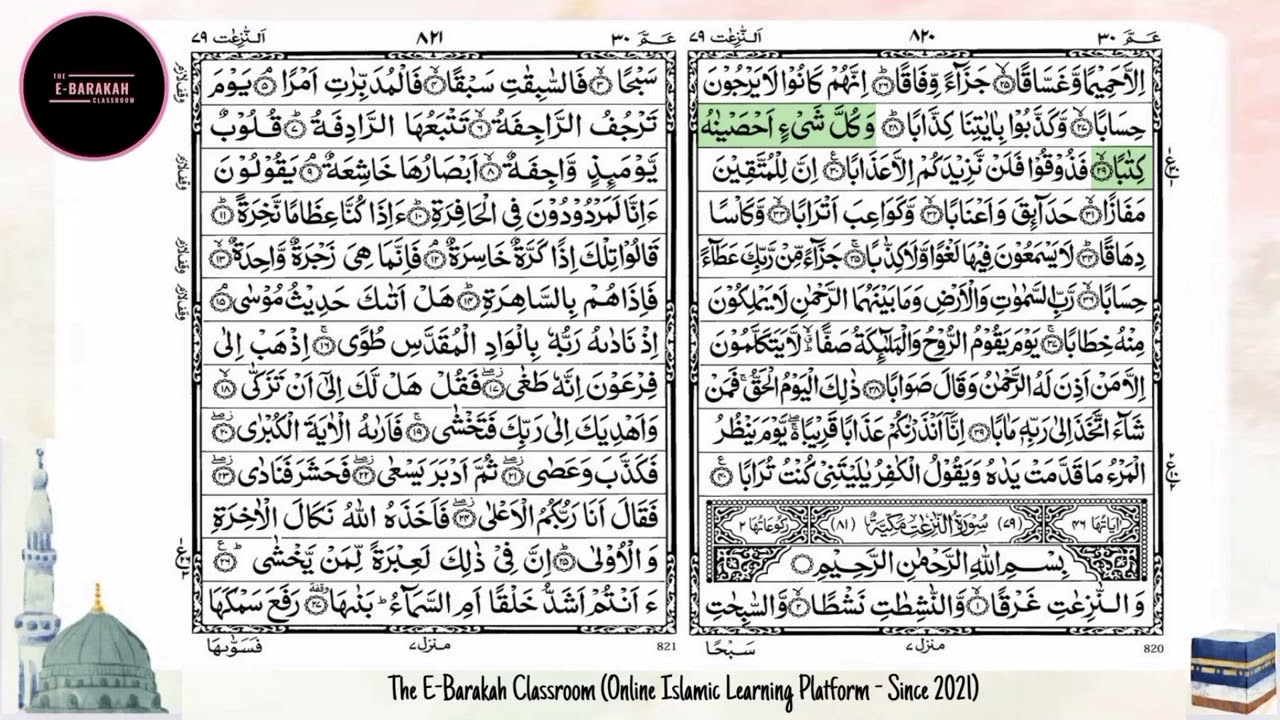 THE
E-BARAKAH
CLASSROOM
عـمّ ٣٠
٨٢٠
النّٰزِعٰت ٧٩
اِلَّا حَمِيْمًا وَّغَسَّاقًا ۙ‏﴿۲۵﴾ جَزَآءً وِّفَاقًا ؕ‏﴿۲۶﴾ اِنَّهُمْ كَانُوْا لَا يَرْجُوْنَ
حِسَابًا ۙ‏﴿۲۷﴾ وَّكَذَّبُوْا بِاٰيٰتِنَا كِذَّابًا ؕ‏﴿۲۸﴾ وَكُلَّ شَىْءٍ اَحْصَيْنٰهُ
كِتٰبًا ۙ‏﴿۲۹﴾ فَذُوْقُوْا فَلَنْ نَّزِيْدَكُمْ اِلَّا عَذَابًا ‏﴿۳۰﴾ اِنَّ لِلْمُتَّقِيْنَ
مَفَازًا ۙ‏﴿۳۱﴾ حَدَآئِقَ وَاَعْنَابًا ۙ‏﴿۳۲﴾ وَّكَوَاعِبَ اَتْرَابًا ۙ‏﴿۳۳﴾ وَّكَاْسًا
دِهَاقًا ؕ‏﴿۳۴﴾ لَا يَسْمَعُوْنَ فِيْهَا لَغْوًا وَّلَا كِذّٰبًا ۚ‏﴿۳۵﴾ جَزَآءً مِّنْ رَّبِّكَ عَطَآءً
حِسَابًا ۙ‏﴿۳۶﴾ رَّبِّ السَّمٰوٰتِ وَالْاَرْضِ وَمَا بَيْنَهُمَا الرَّحْمٰنِ لَا يَمْلِكُوْنَ
مِنْهُ خِطَابًا ۚ‏﴿۳۷﴾ يَوْمَ يَقُوْمُ الرُّوْحُ وَالْمَلٰٓئِكَةُ صَفًّا ۙ لَّا يَتَكَلَّمُوْنَ
اِلَّا مَنْ اَذِنَ لَهُ الرَّحْمٰنُ وَقَالَ صَوَابًا ‏﴿۳۸﴾ ذٰلِكَ الْيَوْمُ الْحَقُّ ۚ فَمَنْ
شَآءَ اتَّخَذَ اِلٰى رَبِّهٖ مَاٰبًا ‏﴿۳۹﴾ اِنَّآ اَنْذَرْنٰكُمْ عَذَابًا قَرِيْبًا ۚۖ يَّوْمَ يَنْظُرُ
الْمَرْءُ مَا قَدَّمَتْ يَدٰهُ وَيَقُوْلُ الْكٰفِرُ يٰلَيْتَنِىْ كُنْتُ تُرٰبًا ‏﴿۴۰﴾
اٰيَاتُهَا ٤٦ (٧٩) سُوْرَةُ النّٰزِعٰتِ مَكِّيَّةٌ (٨١) رُكُوْعَاتُهَا ٢
بِسْمِ اللهِ الرَّحْمٰنِ الرَّحِيْمِ
وَالنّٰزِعٰتِ غَرْقًا ۙ‏﴿۱﴾ وَّالنّٰشِطٰتِ نَشْطًا ۙ‏﴿۲﴾ وَّالسّٰبِحٰتِ
820
منزل ٧
سَبْحًا
عـمّ ٣٠
٨٢١
النّٰزِعٰت ٧٩
سَبْحًا ۙ‏﴿۳﴾ فَالسّٰبِقٰتِ سَبْقًا ۙ‏﴿۴﴾ فَالْمُدَبِّرٰتِ اَمْرًا ۘ‏﴿۵﴾ يَوْمَ
تَرْجُفُ الرَّاجِفَةُ ۙ‏﴿۶﴾ تَتْبَعُهَا الرَّادِفَةُ ؕ‏﴿۷﴾ قُلُوْبٌ
يَّوْمَئِذٍ وَّاجِفَةٌ ۙ‏﴿۸﴾ اَبْصَارُهَا خَاشِعَةٌ ۘ‏﴿۹﴾ يَقُوْلُوْنَ
ءَاِنَّا لَمَرْدُوْدُوْنَ فِى الْحَافِرَةِ ؕ‏﴿۱۰﴾ ءَاِذَا كُنَّا عِظَامًا نَّخِرَةً ؕ‏﴿۱۱﴾
قَالُوْا تِلْكَ اِذًا كَرَّةٌ خَاسِرَةٌ ۘ‏﴿۱۲﴾ فَاِنَّمَا هِىَ زَجْرَةٌ وَّاحِدَةٌ ۙ‏﴿۱۳﴾
فَاِذَا هُمْ بِالسَّاهِرَةِ ؕ‏﴿۱۴﴾ هَلْ اَتٰىكَ حَدِيْثُ مُوْسٰى ۘ‏﴿۱۵﴾
اِذْ نَادٰىهُ رَبُّهٗ بِالْوَادِ الْمُقَدَّسِ طُوًى ۚ‏﴿۱۶﴾ اِذْهَبْ اِلٰى
فِرْعَوْنَ اِنَّهٗ طَغٰى ۖ‏﴿۱۷﴾ فَقُلْ هَلْ لَّكَ اِلٰٓى اَنْ تَزَكّٰى ۙ‏﴿۱۸﴾
وَاَهْدِيَكَ اِلٰى رَبِّكَ فَتَخْشٰى ۚ‏﴿۱۹﴾ فَاَرٰىهُ الْاٰيَةَ الْكُبْرٰى ۖ‏﴿۲۰﴾
فَكَذَّبَ وَعَصٰى ۖ‏﴿۲۱﴾ ثُمَّ اَدْبَرَ يَسْعٰى ۖ‏﴿۲۲﴾ فَحَشَرَ فَنَادٰى ۖ‏﴿۲۳﴾
فَقَالَ اَنَا رَبُّكُمُ الْاَعْلٰى ۖ‏﴿۲۴﴾ فَاَخَذَهُ اللهُ نَكَالَ الْاٰخِرَةِ
وَالْاُوْلٰى ؕ‏﴿۲۵﴾ اِنَّ فِىْ ذٰلِكَ لَعِبْرَةً لِّمَنْ يَّخْشٰى ؕ‏﴿۲۶﴾
ءَاَنْتُمْ اَشَدُّ خَلْقًا اَمِ السَّمَآءُ ؕ بَنٰىهَا ۥ‏﴿۲۷﴾ رَفَعَ سَمْكَهَا
821
منزل ٧
فَسَوّٰىهَا
The E-Barakah Classroom (Online Islamic Learning Platform - Since 2021)